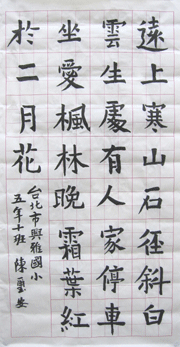 遠上寒山石徑斜白
雲生處有人家停車
坐愛楓林晚霜葉紅
於二月花
台北市興雅國小
五年十班 陳